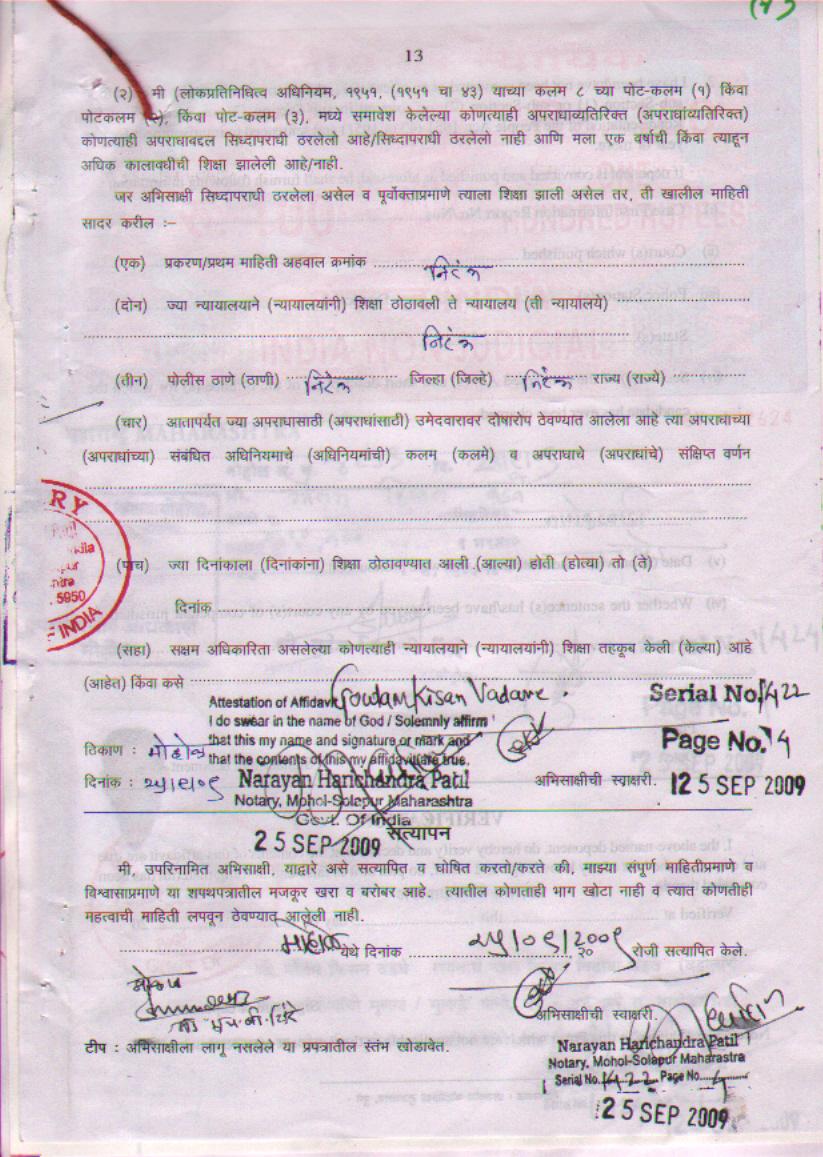 13
(२) मी (लोकप्रतिनिधित्व अधिनियम, १९५१, (१९५१ चा ४३) याच्या कलम ८ च्या पोट-कलम (१) किंवा
पोटकलम (२), किंवा पोट-कलम (३), मध्ये समावेश केलेल्या कोणत्याही अपराधाव्यतिरिक्त (अपराधांव्यतिरिक्त)
कोणत्याही अपराधाबद्दल सिध्दापराधी ठरलेलो आहे/सिध्दापराधी ठरलेलो नाही आणि मला एक वर्षाची किंवा त्याहून
अधिक कालावधीची शिक्षा झालेली आहे/नाही.
जर अभिसाक्षी सिध्दापराधी ठरलेला असेल व पूर्वोक्ताप्रमाणे त्याला शिक्षा झाली असेल तर, ती खालील माहिती
सादर करील :–
(एक) प्रकरण/प्रथम माहिती अहवाल क्रमांक निरंक
(दोन) ज्या न्यायालयाने (न्यायालयांनी) शिक्षा ठोठावली ते न्यायालय (ती न्यायालये)
निरंक
(तीन) पोलीस ठाणे (ठाणी) निरंक जिल्हा (जिल्हे) निरंक राज्य (राज्ये)
(चार) आतापर्यत ज्या अपराधासाठी (अपराधांसाठी) उमेदवारावर दोषारोप ठेवण्यात आलेला आहे त्या अपराधाच्या
(अपराधांच्या) संबंधित अधिनियमाचे (अधिनियमांची) कलम (कलमे) व अपराधाचे (अपराधांचे) संक्षिप्त वर्णन
RY
5950
INDIA
(पाच) ज्या दिनांकाला (दिनांकांना) शिक्षा ठोठावण्यात आली (आल्या) होती (होत्या) तो (ते)
दिनांक
(सहा) सक्षम अधिकारिता असलेल्या कोणत्याही न्यायालयाने (न्यायालयांनी) शिक्षा तहकूब केली (केल्या) आहे
(आहेत) किंवा कसे
Attestation of Affidavit Goutam Kisan Vadane.
I do swear in the name of God / Solemnly affirm
that this my name and signature or mark and
that the contents of this my affidavit are true.
Serial No. 1422
Page No. 4
ठिकाण : मोहोळ
दिनांक : २५/९/०९
Narayan Harichandra Patil
Notary, Mohol-Solapur Maharashtra
Govt. Of India
25 SEP 2009
अभिसाक्षीची स्वाक्षरी.
25 SEP 2009
सत्यापन
मी, उपरिनामित अभिसाक्षी, याद्वारे असे सत्यापित व घोषित करतो/करते की, माझ्या संपूर्ण माहितीप्रमाणे व
विश्वासाप्रमाणे या शपथपत्रातील मजकूर खरा व बरोबर आहे. त्यातील कोणताही भाग खोटा नाही व त्यात कोणतीही
महत्वाची माहिती लपवून ठेवण्यात आलेली नाही.
मोहोळ येथे दिनांक २५/०९/२००९ २० रोजी सत्यापित केले.
अभिसाक्षीची स्वाक्षरी.
टीप : अभिसाक्षीला लागू नसलेले या प्रपत्रातील स्तंभ खोडावेत.
Narayan Harichandra Patil
Notary, Mohol-Solapur Maharastra
Serial No. 1422 Page No. 4
25 SEP 2009